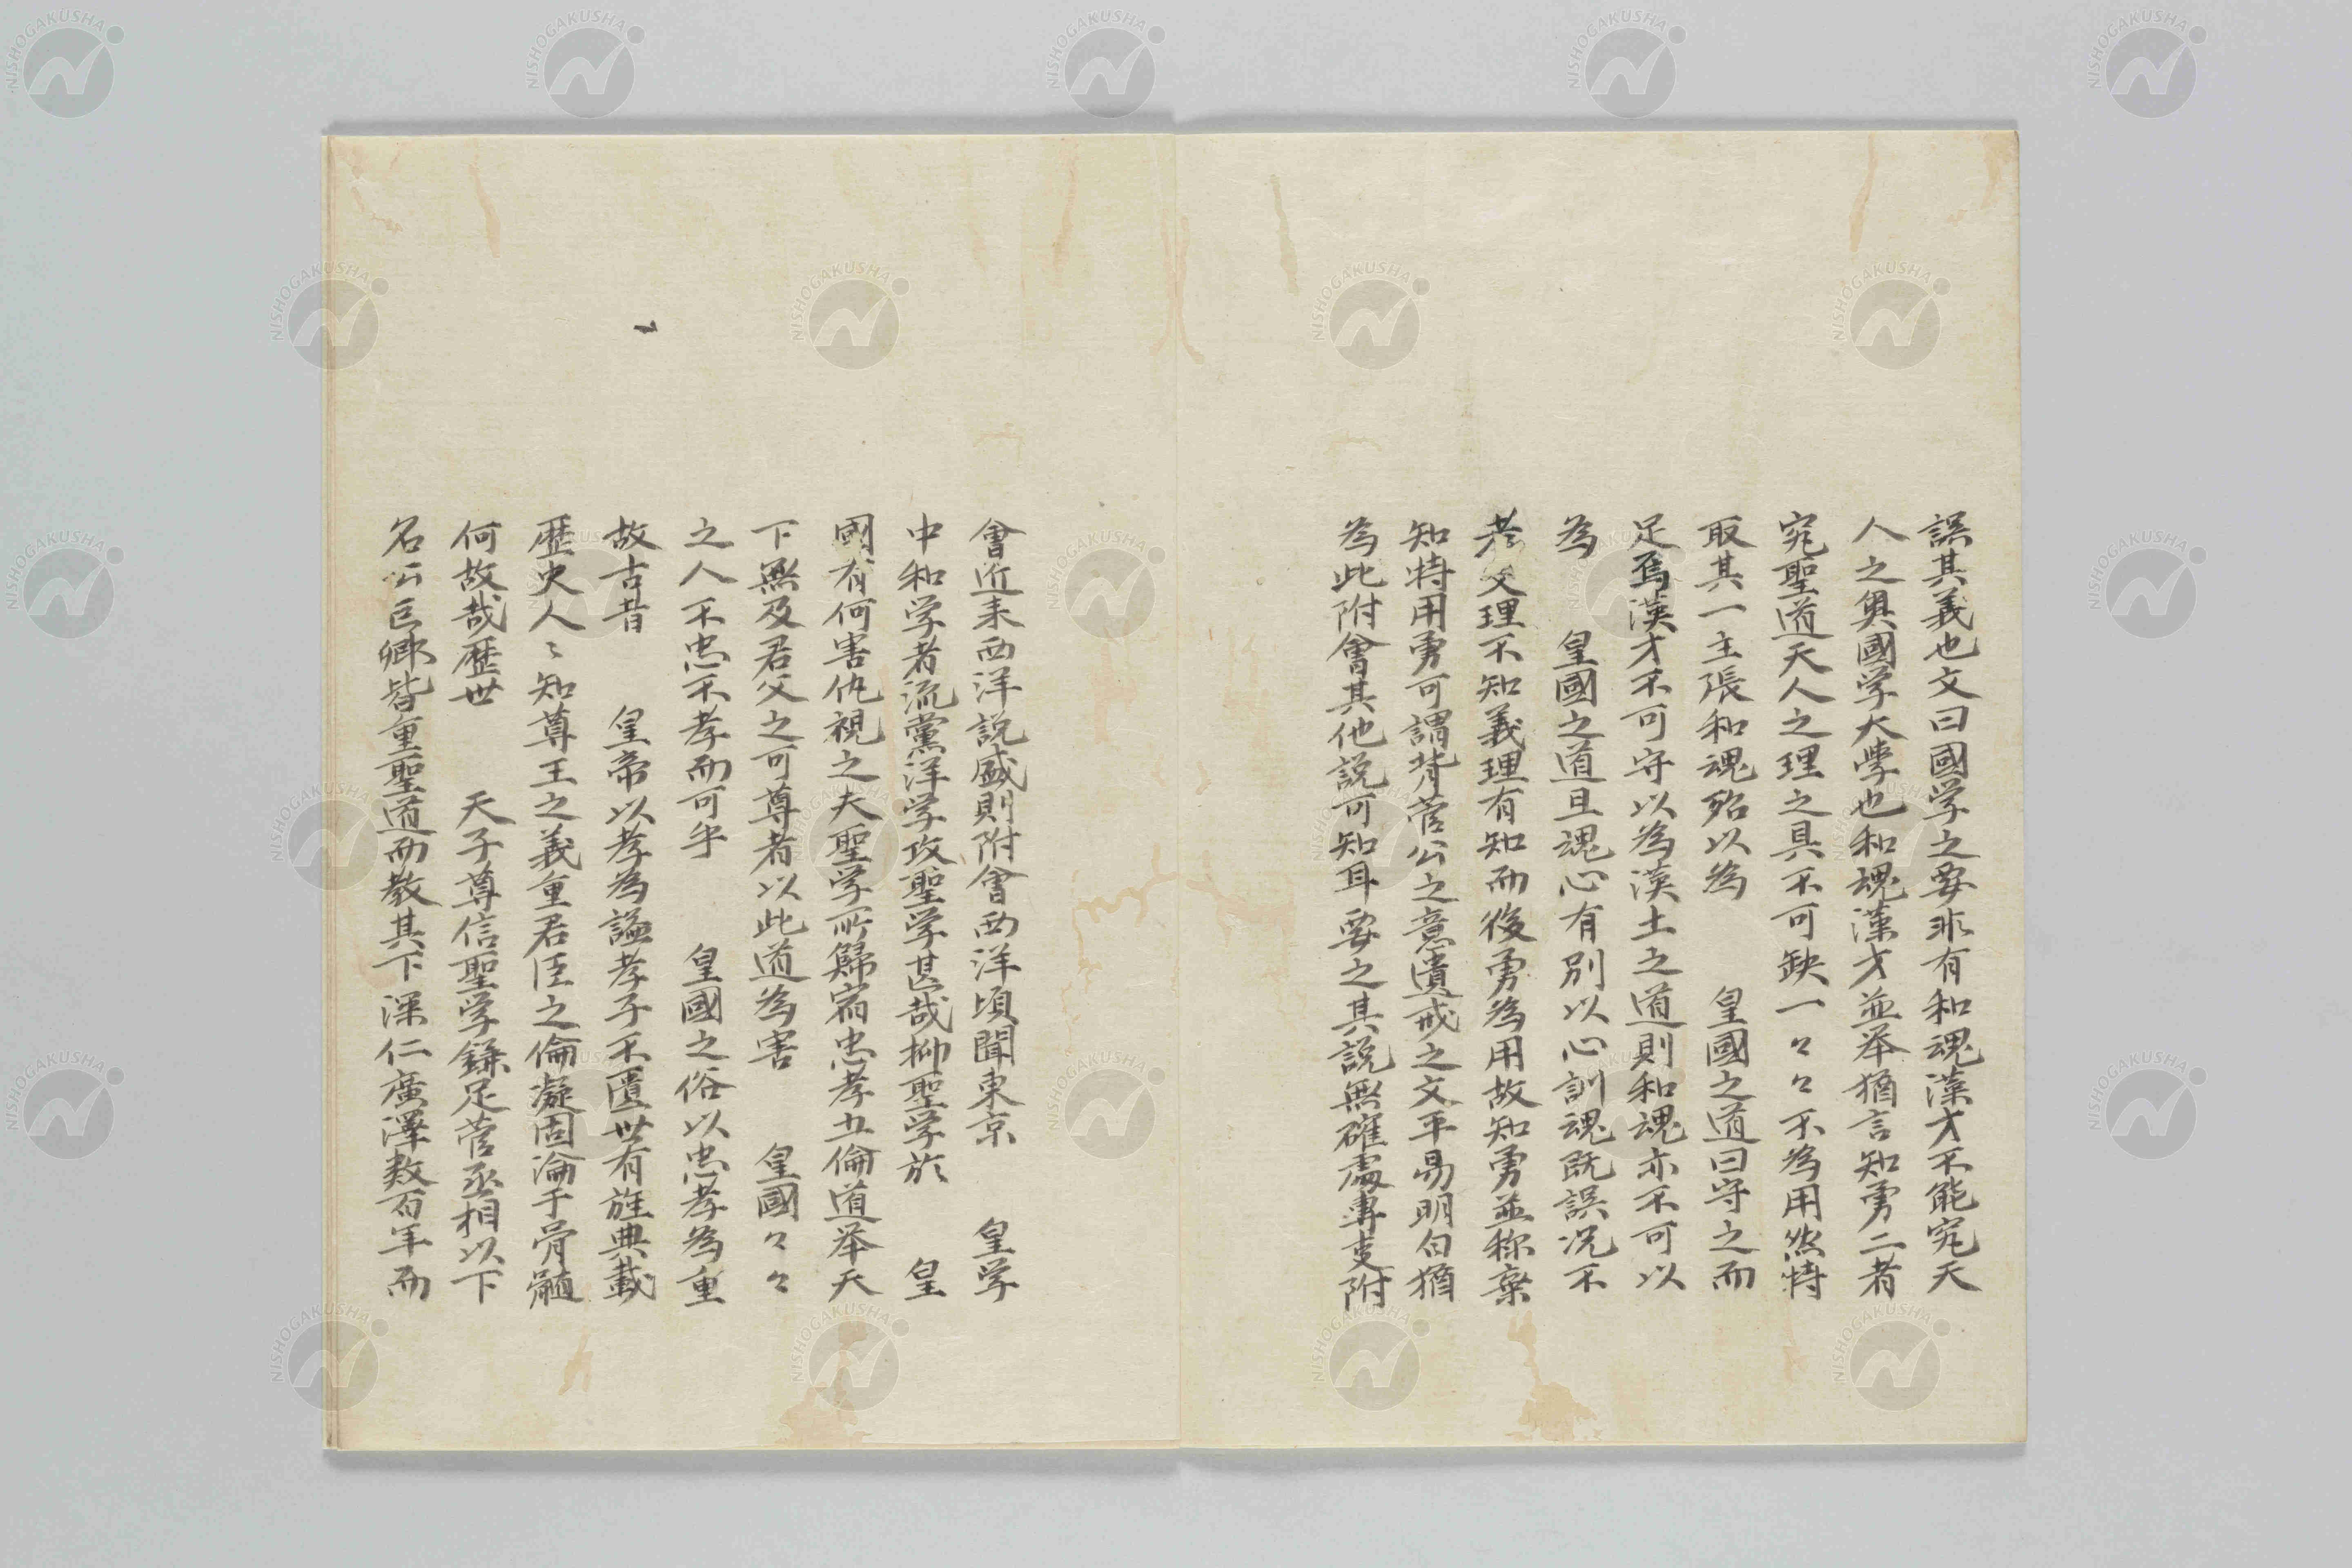 誤其義也文曰國学之要非有和魂漢才不能究天
人之奥國学大學也和魂漢才並举猶言知勇二者
究聖道天人之理之具不可缺一々々不為用然特
取其一主張和魂殆以為　皇國之道曰守之而
足焉漢才不可守以為漢土之道則和魂亦不可以
為　皇國之道且魂心有別以心訓魂既誤况不
考文理不知義理有知而後勇為用故知勇並称棄
知特用勇可謂背菅公之意遺戒之文平易明白猶
為此附會其他說可知耳要之其說無確處專支附
會近来西洋説盛則附會西洋頃聞東京　皇学
中和学者流黨洋学攻聖学甚哉抑聖学於　皇
國有何害仇視之夫聖学所歸宿忠孝五倫道举天
下無及君父之可尊者以此道為害　皇國々々
之人不忠不孝而可乎　皇國之俗以忠孝為重
故古昔　皇帝以孝為諡孝子不匱世有旌典載
歷史人々知尊王之義重君臣之倫凝固淪于骨髓
何故哉歷世　天子尊信聖学鎌足菅丞相以下
名公巨卿皆重聖道而教其下深仁廣澤数百年而
NISHOGAKUSHA